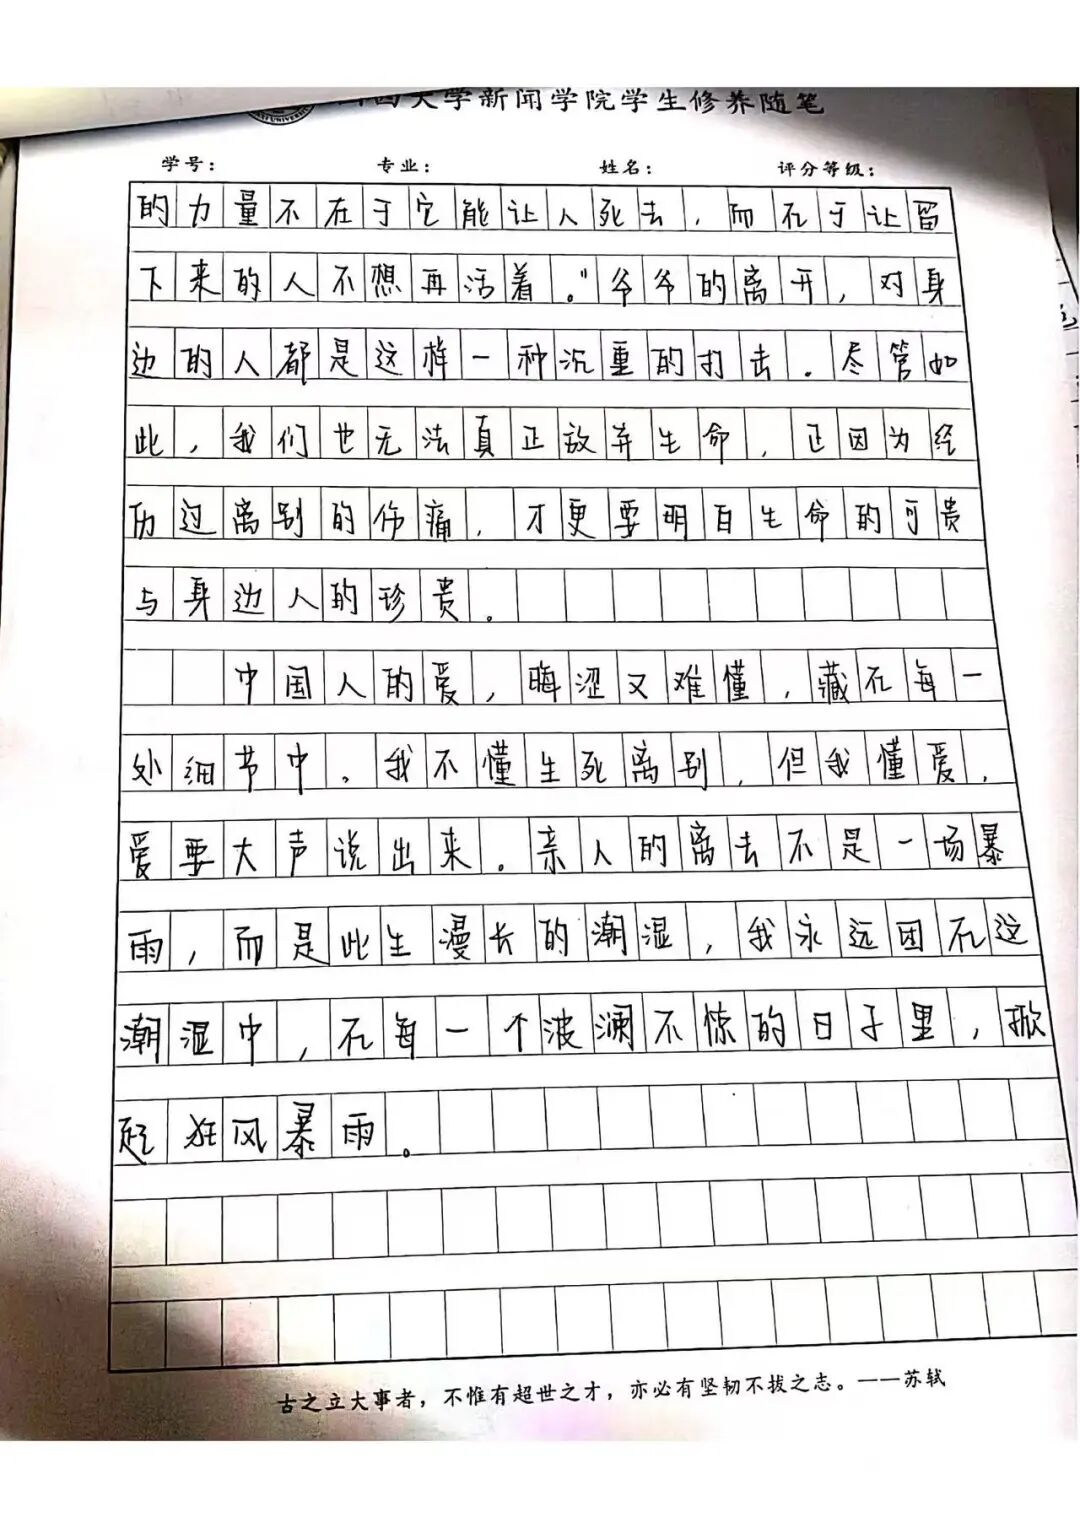 大学新闻学院学生修养随笔
学号： 专业： 姓名： 评分等级：
的力量不在于它能让人死去，而在于让留
下来的人不想再活着。"爷爷的离开，对身
边的人都是这样一种沉重的打击。尽管如
此，我们也无法真正放弃生命，正因为经
历过离别的伤痛，才更要明白生命的可贵
与身边人的珍贵。
中国人的爱，晦涩又难懂，藏在每一
处细节中。我不懂生死离别，但我懂爱，
爱要大声说出来。亲人的离去不是一场暴
雨，而是此生漫长的潮湿，我永远困在这
潮湿中，在每一个波澜不惊的日子里，掀
起狂风暴雨。
古之立大事者，不惟有超世之才，亦必有坚韧不拔之志。——苏轼